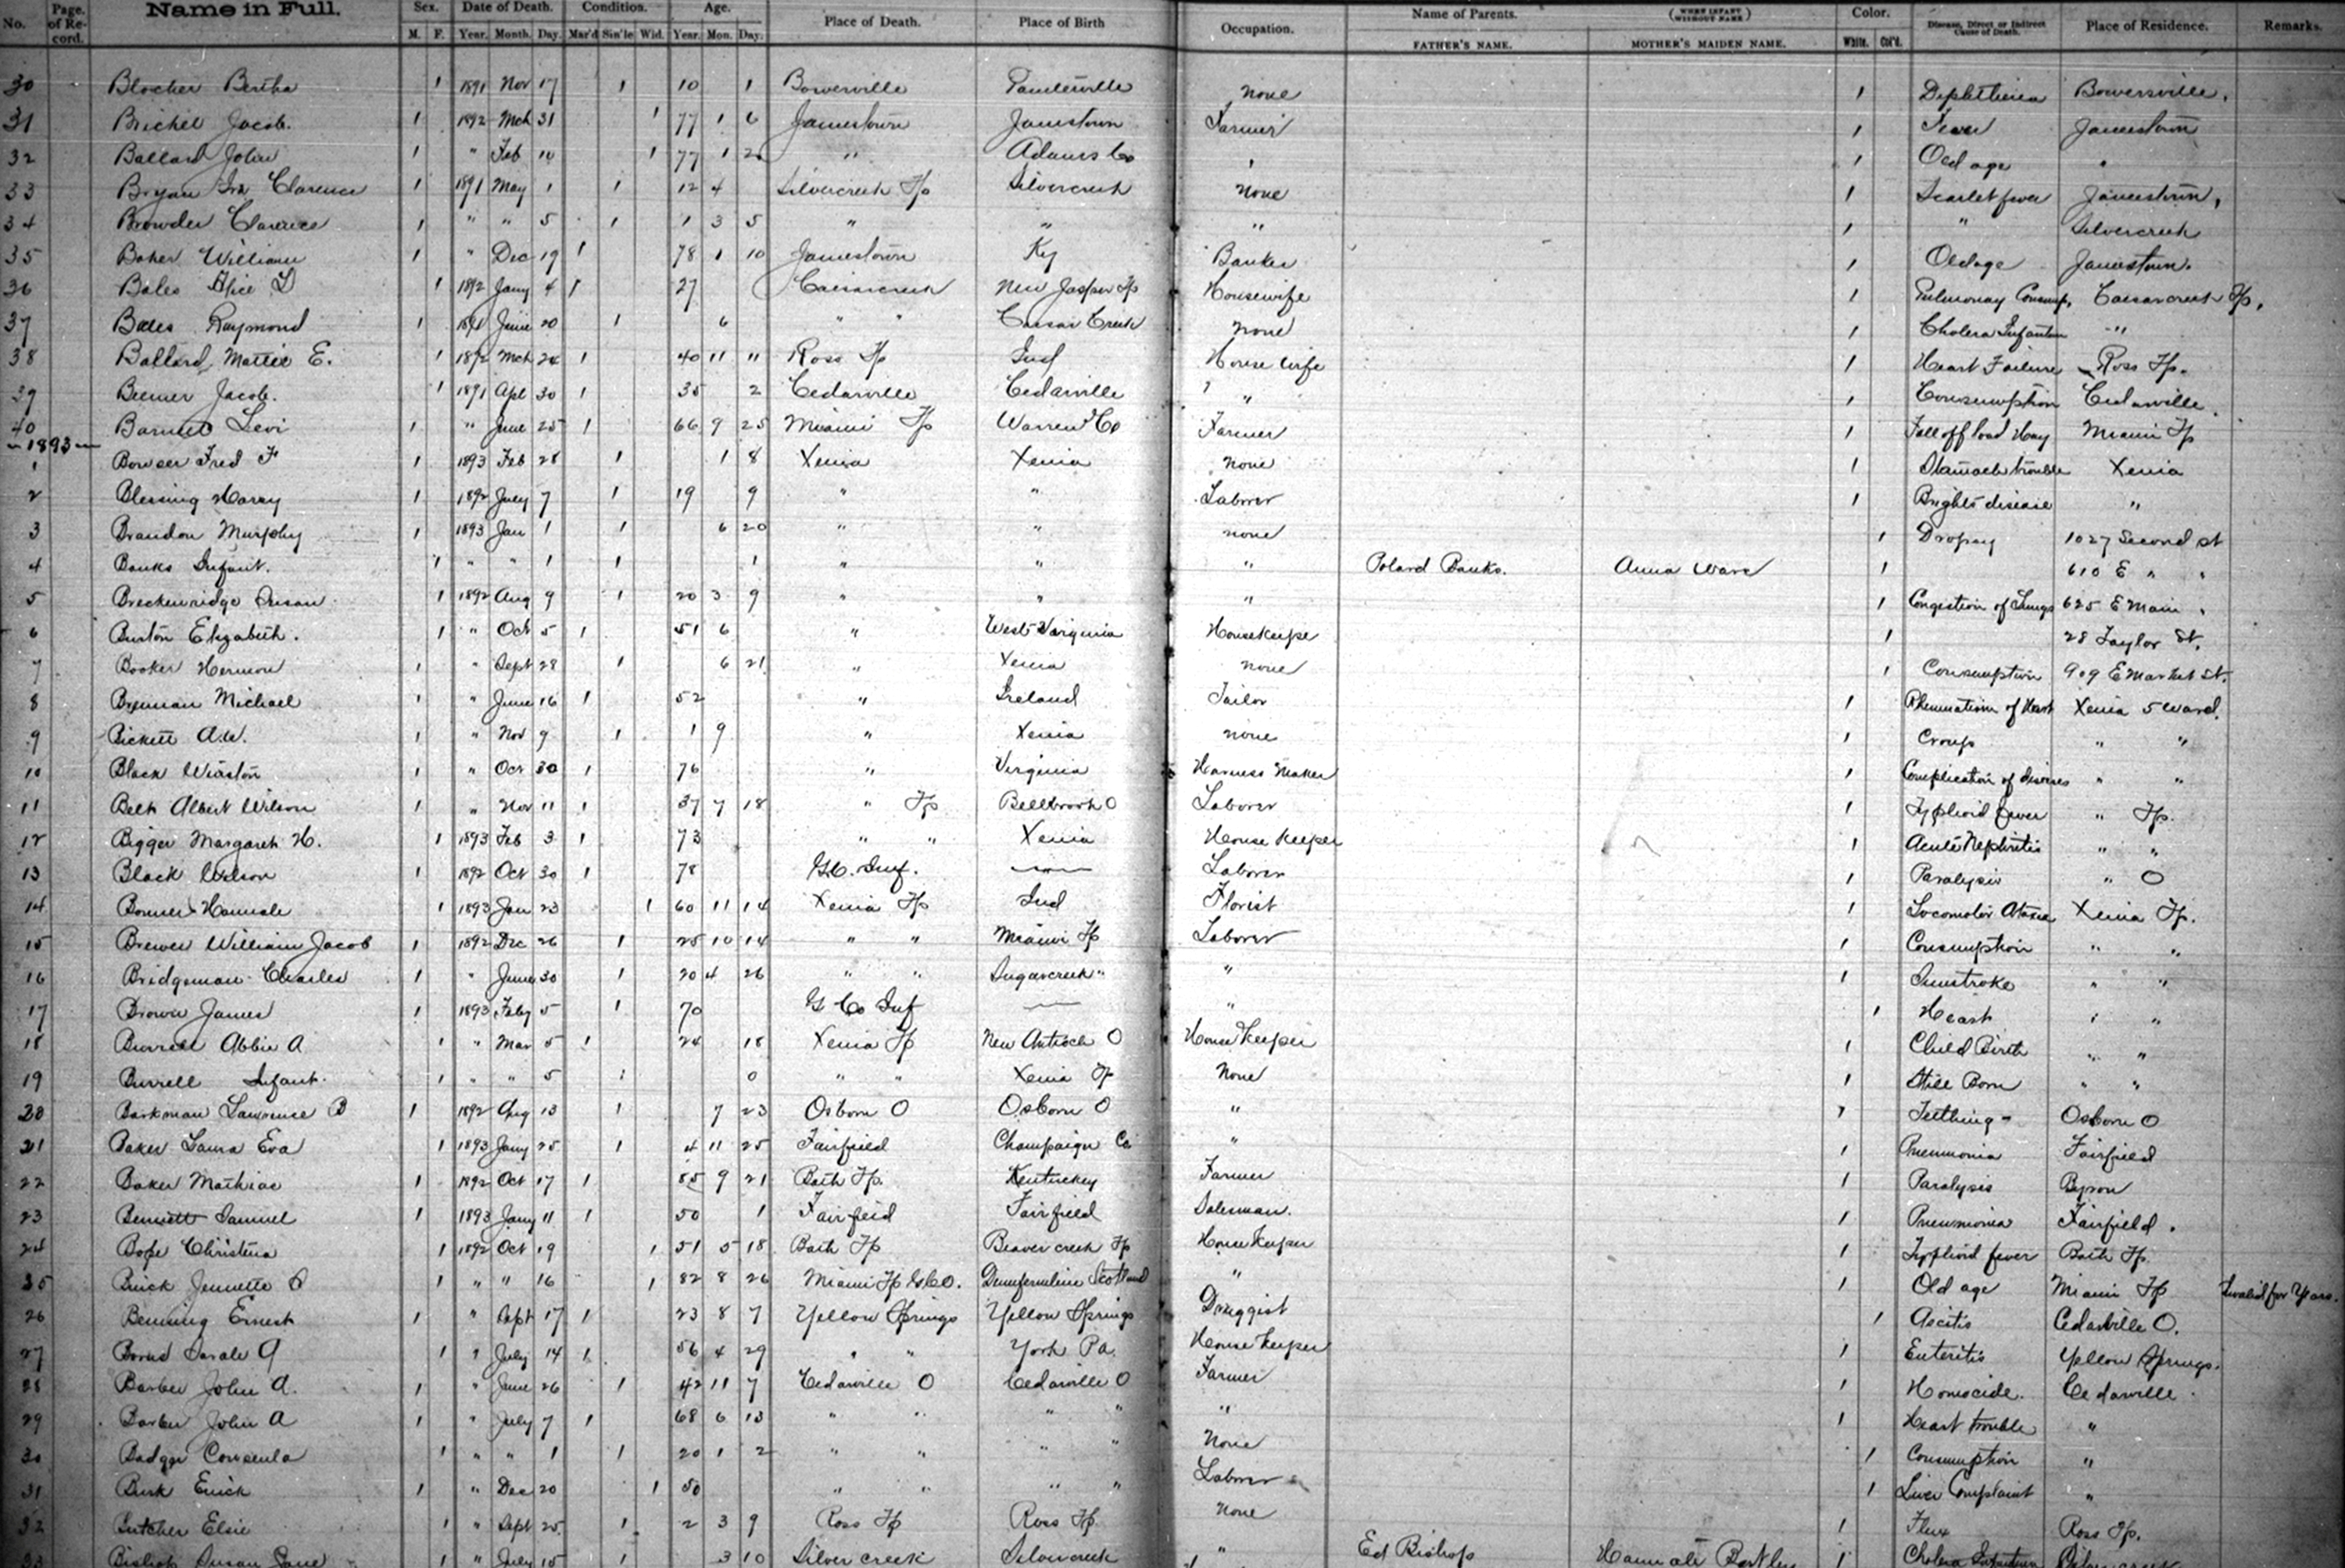 No. Page. of Re- cord. Name in Full. Sex. M. F. Date of Death. Year. Month. Day. Condition. Mar'd Sin'le Wid. Age. Year. Mon. Day. Place of Death. Place of Birth Occupation. Name of Parents. FATHER'S NAME. (WHEN INFANT WITHOUT NAME) MOTHER'S MAIDEN NAME. Color. White. Col'd. Disease, Direct or Indirect Cause of Death. Place of Residence. Remarks.
30 Blocher Bertha 1 1891 Nov 17 1 10 1 Bowerville none 1 Diphtheria Bowersville.
31 Brickel Jacob. 1 1892 Mch 31 1 77 1 6 Jamestown Jamestown Farmer 1 Fever Jamestown
32 Ballard John 1 " Feb 10 1 77 1 Adams Co 1 Old age "
33 Bryan Ira Clarence 1 1891 May 1 1 12 4 Silvercreek Tp Silvercreek none 1 Scarlet fever Jamestown,
34 Browder Clarence 1 " " 5 1 1 3 5 " " " 1 " Silvercreek
35 Baker William 1 " Dec 19 1 78 1 10 Jamestown Ky Banker 1 Old age Jamestown.
36 Bales Alice D 1 1892 Jany 4 1 27 Caesarcreek New Jasper Tp Housewife 1 Pulmonay Consump. Caesarcreek Tp.
37 Bales Raymond 1 1891 June 20 1 6 " " Caesar Creek none 1 Cholera Infantum "
38 Ballard Mattie E. 1 1892 Mch 24 1 40 11 11 Ross Tp Ind House wife 1 Heart Failure Ross Tp.
39 Beemer Jacob. 1 1891 Apl 30 1 35 2 Cedarville Cedarville " 1 Consumption Cedarville.
40 Barnet Levi 1 " June 25 1 66 9 25 Miami Tp Warren Co Farmer 1 Fall off load Hay Miami Tp
-1893-
1 Bowser Fred F 1 1893 Feb 28 1 1 8 Xenia Xenia none 1 Stomach trouble Xenia
2 Blessing Harry 1 1892 July 7 1 19 9 " " Laborer 1 Brights disease "
3 Brandon Murphy 1 1893 Jan 1 1 6 20 " " none 1 Dropsy 1027 Second st
4 Banks Infant. 1 " " 1 1 1 " " " Poland Banks. Anna Ware 1 610 E " "
5 Breckenridge Susan 1 1892 Aug 9 1 20 3 9 " " " 1 Congestion of Lungs 625 E Main "
6 Burton Elizabeth. 1 " Oct 5 1 51 6 " West Virginia Housekeeper 1 28 Taylor St.
7 Booker Hermon 1 " Sept 28 1 6 21 " Xenia none 1 Consumption 909 E Market St.
8 Brennan Michael 1 " June 16 1 52 " Ireland Tailor 1 Rheumatism of Heart Xenia 5 ward.
9 Bickett A.W. 1 " Nov 9 1 1 9 " Xenia none 1 Croup " "
10 Black Winston 1 " Oct 30 1 76 " Virginia Harness Maker 1 Complication of diseases " "
11 Belt Albert Wilson 1 " Nov 11 1 37 7 18 " Tp Bellbrook O Laborer 1 Typhoid fever " Tp.
12 Bigger Margaret H. 1 1893 Feb 3 1 73 " " Xenia House Keeper 1 Acute Nephritis " "
13 Black Wilson 1 1892 Oct 30 1 78 G.C. Inf. — Laborer 1 Paralysis " O
14 Bonner Hannah 1 1893 Jan 23 1 60 11 14 Xenia Tp Ind Florist 1 Locomotor Ataxia Xenia Tp.
15 Brewer William Jacob 1 1892 Dec 26 1 25 10 14 " " Miami Tp Laborer 1 Consumption " "
16 Bridgeman Charles 1 " June 30 1 20 4 26 " " Sugarcreek " " 1 Sunstroke " "
17 Brown James 1 1893 Feby 5 1 70 G Co Inf — " 1 Heart " "
18 Burrell Abbie A 1 " Mar 5 1 24 18 Xenia Tp New Antioch O House Keeper 1 Child Birth " "
19 Burrell Infant. 1 " " 5 1 0 " " Xenia Tp None 1 Still Born " "
20 Barkman Lawrence B 1 1892 Aug 13 1 7 23 Osborn O Osborn O " 1 Teething - Osborn O
21 Baker Laura Eva 1 1893 Jany 25 1 4 11 25 Fairfield Champaign Co " 1 Pneumonia Fairfield
22 Baker Mathias 1 1892 Oct 17 1 85 9 21 Bath Tp. Kentuckey Farmer 1 Paralysis Byron
23 Bennett Samuel 1 1893 Jany 11 1 50 1 Fairfield Fairfield Salesman. 1 Pneumonia Fairfield.
24 Bope Christena 1 1892 Oct 19 1 51 5 18 Bath Tp Beaver creek Tp House Keeper 1 Typhoid fever Bath Tp
25 Buick Jennette S 1 " " 16 1 82 8 26 Miami Tp G.Co. Dunfermline Scotland " 1 Old age Miami Tp Invalid for Years.
26 Benning Ernest 1 " Sept 17 1 23 8 7 Yellow Springs Yellow Springs Druggist 1 Ascitis Cedarville O.
27 Sarah A 1 " July 14 1 56 4 29 " " York Pa. House keeper 1 Enteritis Yellow Springs.
28 Barber John A. 1 " June 26 1 42 11 7 Cedarville O Cedarville O Farmer 1 Homocide. Cedarville.
29 Barber John A 1 " July 7 1 68 6 13 " " " " " 1 Heart trouble "
30 Badger 1 " " 1 1 20 1 2 " " " " None 1 Consumption "
31 Busk 1 " Dec 20 1 50 " " " " Laborer 1 Liver Complaint "
32 Butcher Elsie 1 " Sept 25 1 2 3 9 Ross Tp Ross Tp None 1 Flux Ross Tp.
33 Bishop Susan Jane 1 " July 15 1 3 10 Silver creek Silvercreek " Ed Bishop Hannah 1 Cholera Infantum